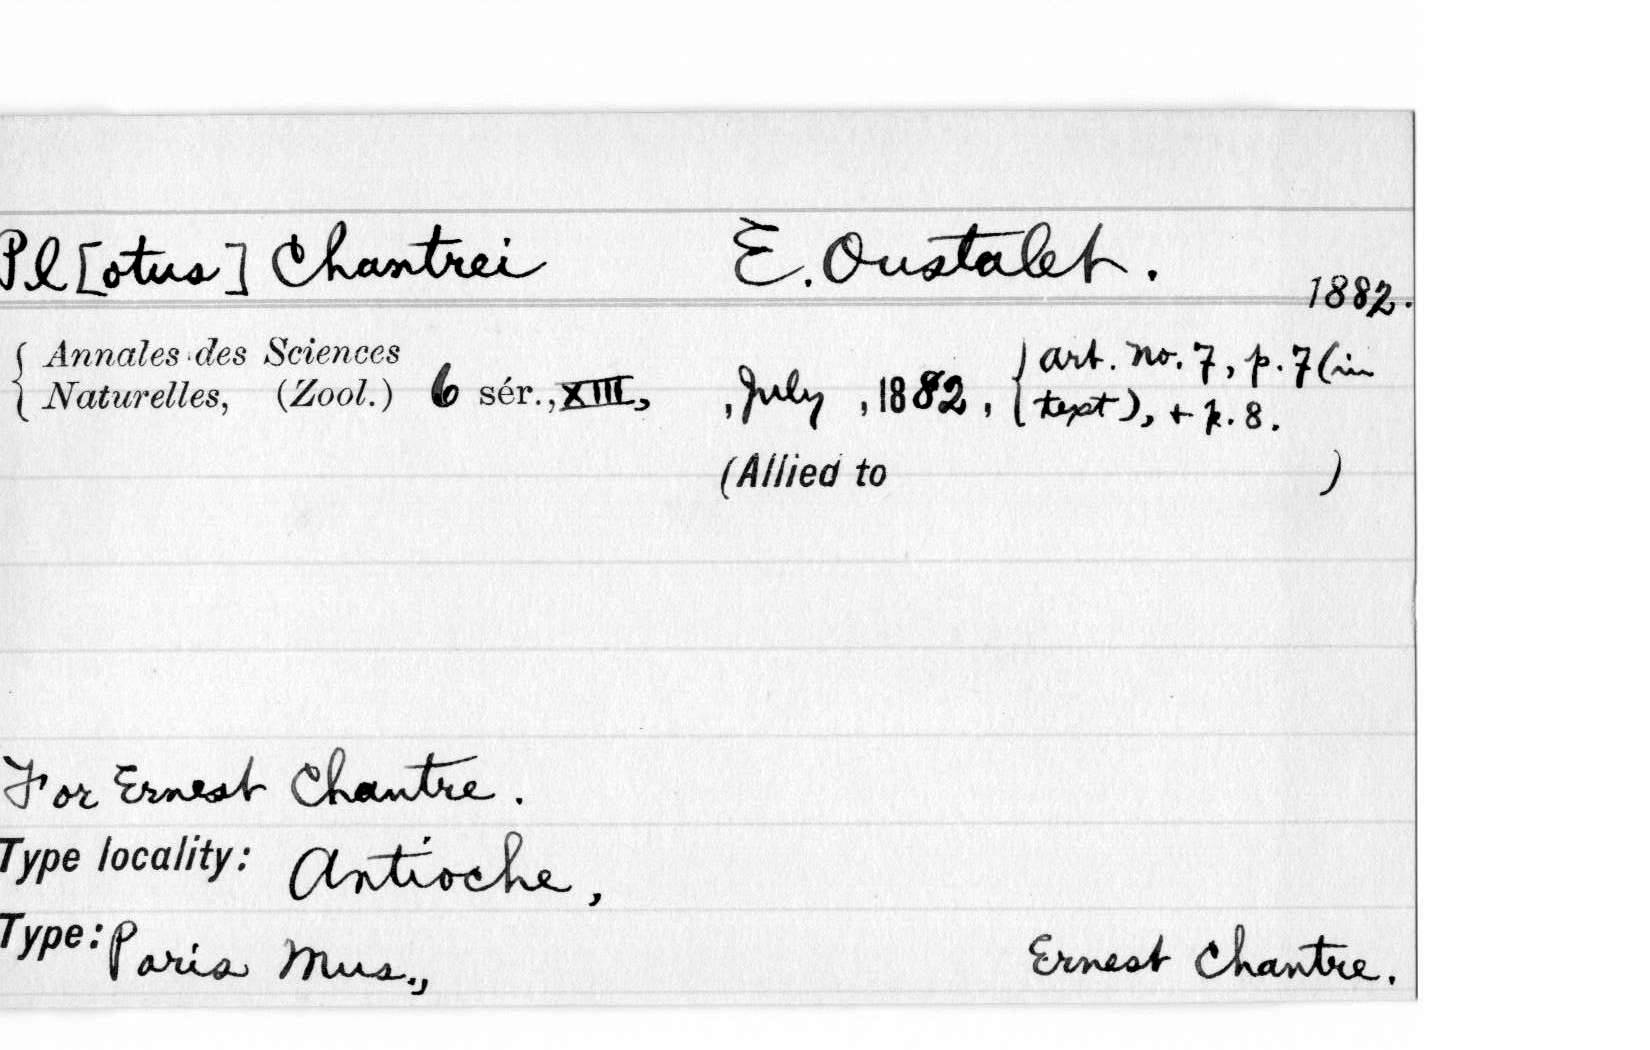 Pl[otus] Chantrei E. Oustalet. 1882.
Annales des Sciences
Naturelles, (Zool.) 6 sér., XIII, , July , 1882, { art. no. 7, p. 7 (in
text), + p. 8.
(Allied to )
For Ernest Chantre.
Type locality: Antioche,
Type: Paris Mus., Ernest Chantre.